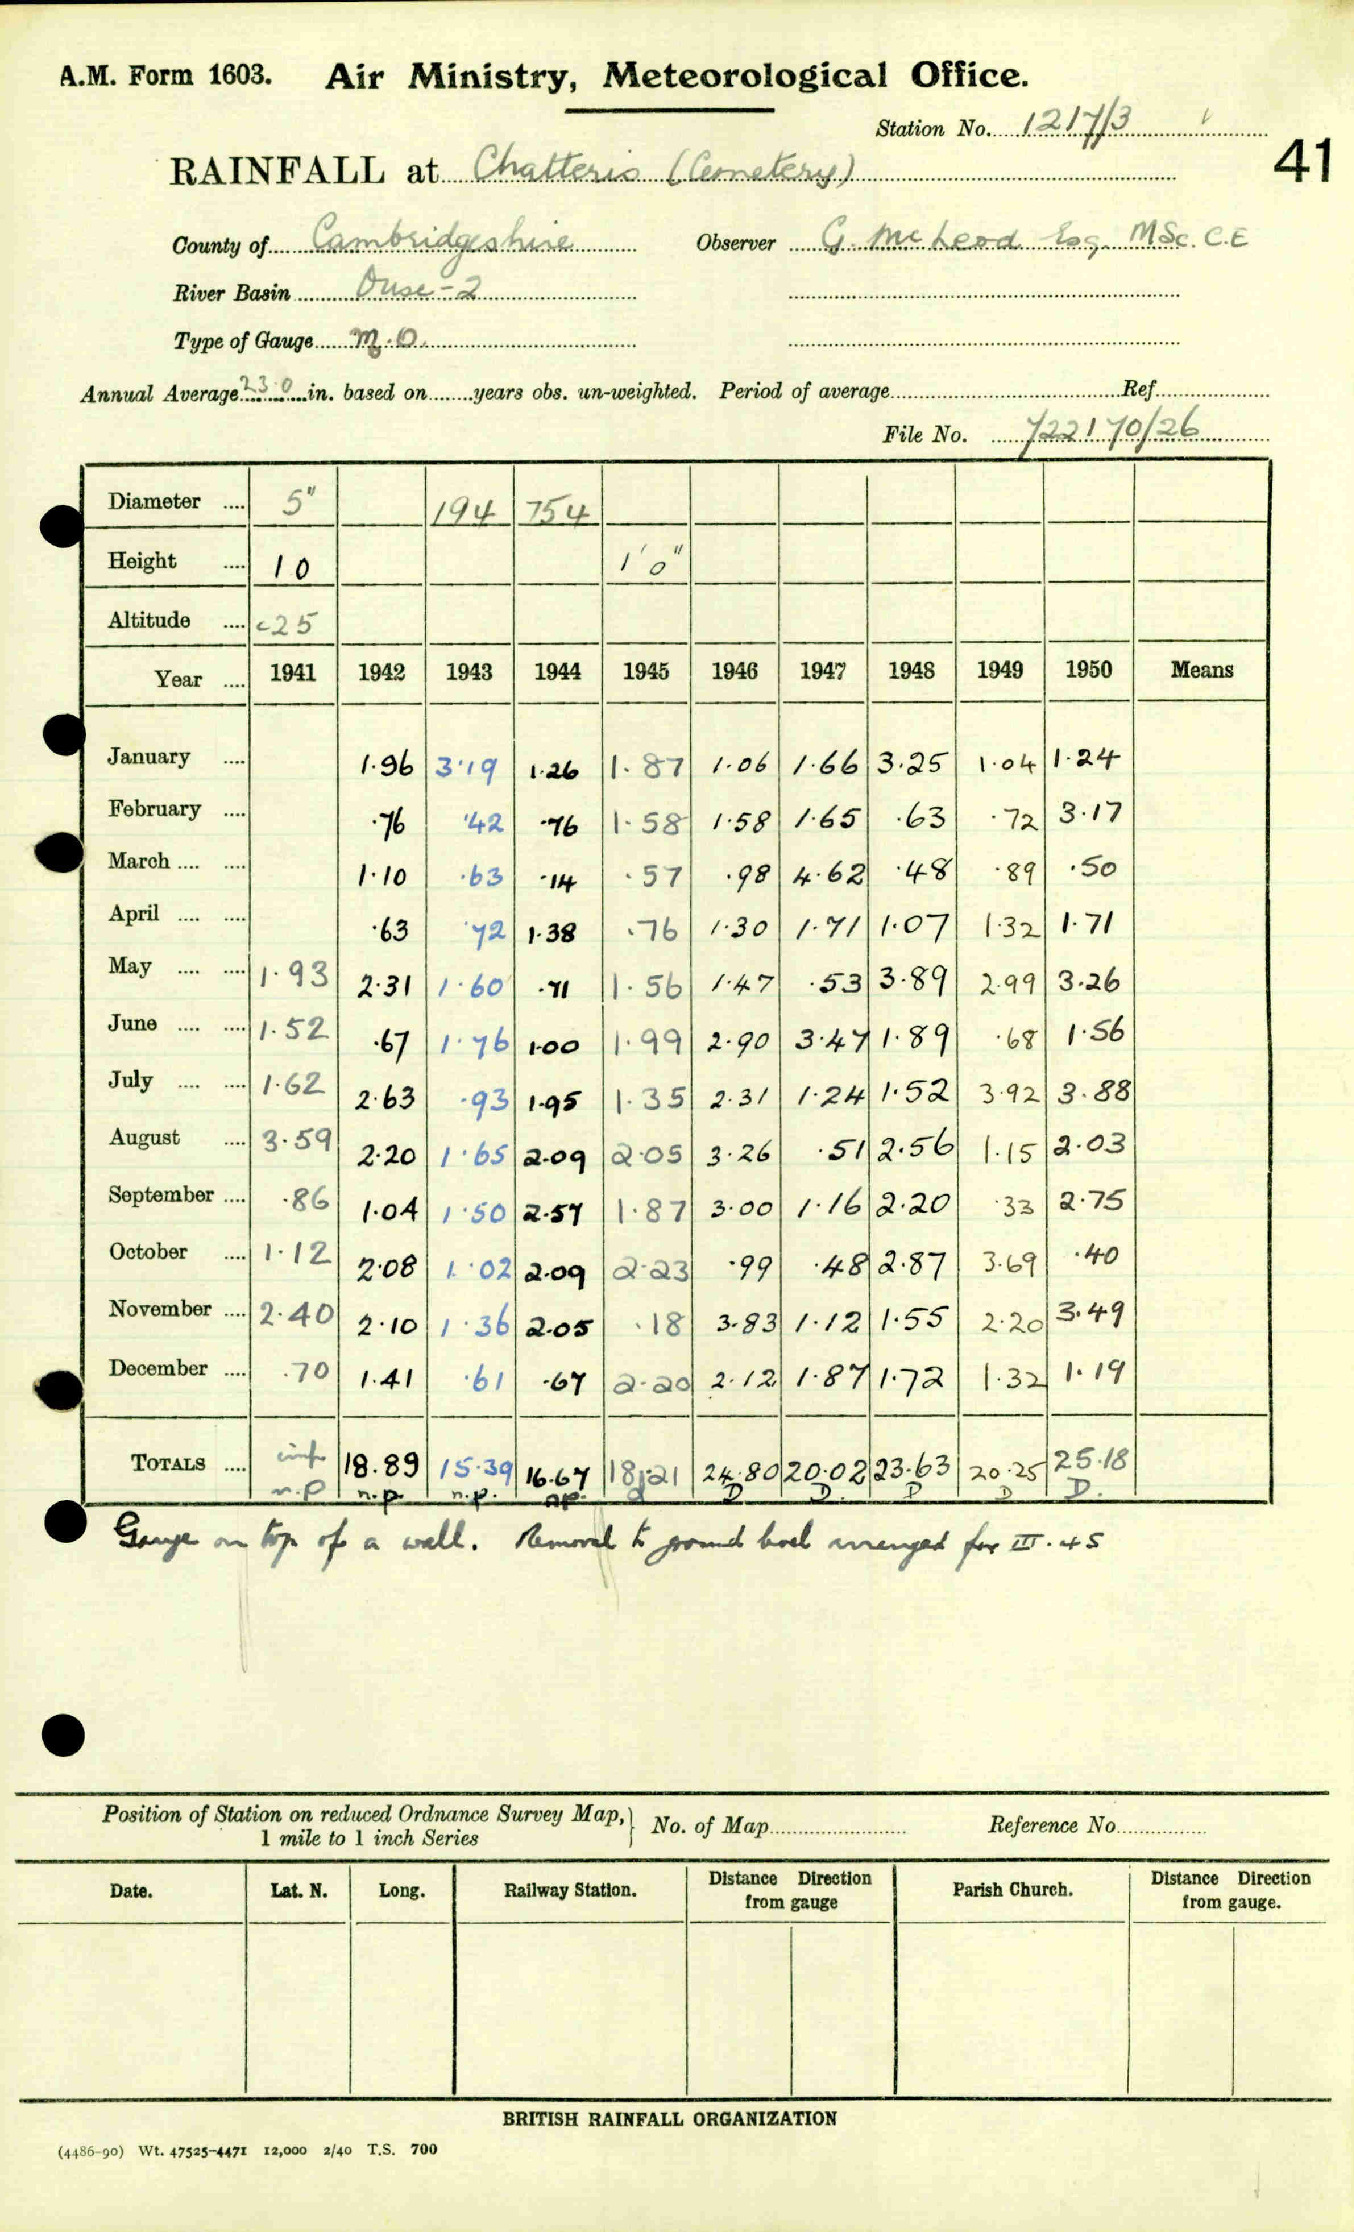 A.M. Form 1603. Air Ministry, Meteorological Office.
Station No. 1217/3
41
RAINFALL at Chatteris (Cemetery)
County of Cambridgeshire Observer G. McLeod Esq. MSc. C.E
River Basin Ouse-2
Type of Gauge M.O.
Annual Average 23.0 in. based on years obs. un-weighted. Period of average Ref
File No. 722170/26
Diameter 5" 194 754
Height 10 1'0"
Altitude c25
Year 1941 1942 1943 1944 1945 1946 1947 1948 1949 1950 Means
January 1.96 3.19 1.26 1.87 1.06 1.66 3.25 1.04 1.24
February .76 .42 .76 1.58 1.58 1.65 .63 .72 3.17
March 1.10 .63 .14 .57 .98 4.62 .48 .89 .50
April .63 .72 1.38 .76 1.30 1.71 1.07 1.32 1.71
May 1.93 2.31 1.60 .71 1.56 1.47 .53 3.89 2.99 3.26
June 1.52 .67 1.76 1.00 1.99 2.90 3.47 1.89 .68 1.56
July 1.62 2.63 .93 1.95 1.35 2.31 1.24 1.52 3.92 3.88
August 3.59 2.20 1.65 2.09 2.05 3.26 .51 2.56 1.15 2.03
September .86 1.04 1.50 2.57 1.87 3.00 1.16 2.20 .33 2.75
October 1.12 2.08 1.02 2.09 2.23 .99 .48 2.87 3.69 .40
November 2.40 2.10 1.36 2.05 .18 3.83 1.12 1.55 2.20 3.49
December .70 1.41 .61 .67 2.20 2.12 1.87 1.72 1.32 1.19
TOTALS 18.89 15.39 16.67 18.21 24.80 20.02 23.63 20.25 25.18
n.p n.p. n.p. n.p. D D. D D D.
Gauge on top of a wall. Removal to ground level arranged for III.45
Position of Station on reduced Ordnance Survey Map, 1 mile to 1 inch Series No. of Map Reference No
Date. Lat. N. Long. Railway Station. Distance Direction from gauge Parish Church. Distance Direction from gauge.
BRITISH RAINFALL ORGANIZATION
(4486-90) Wt. 47525-4471 12,000 2/40 T.S. 700